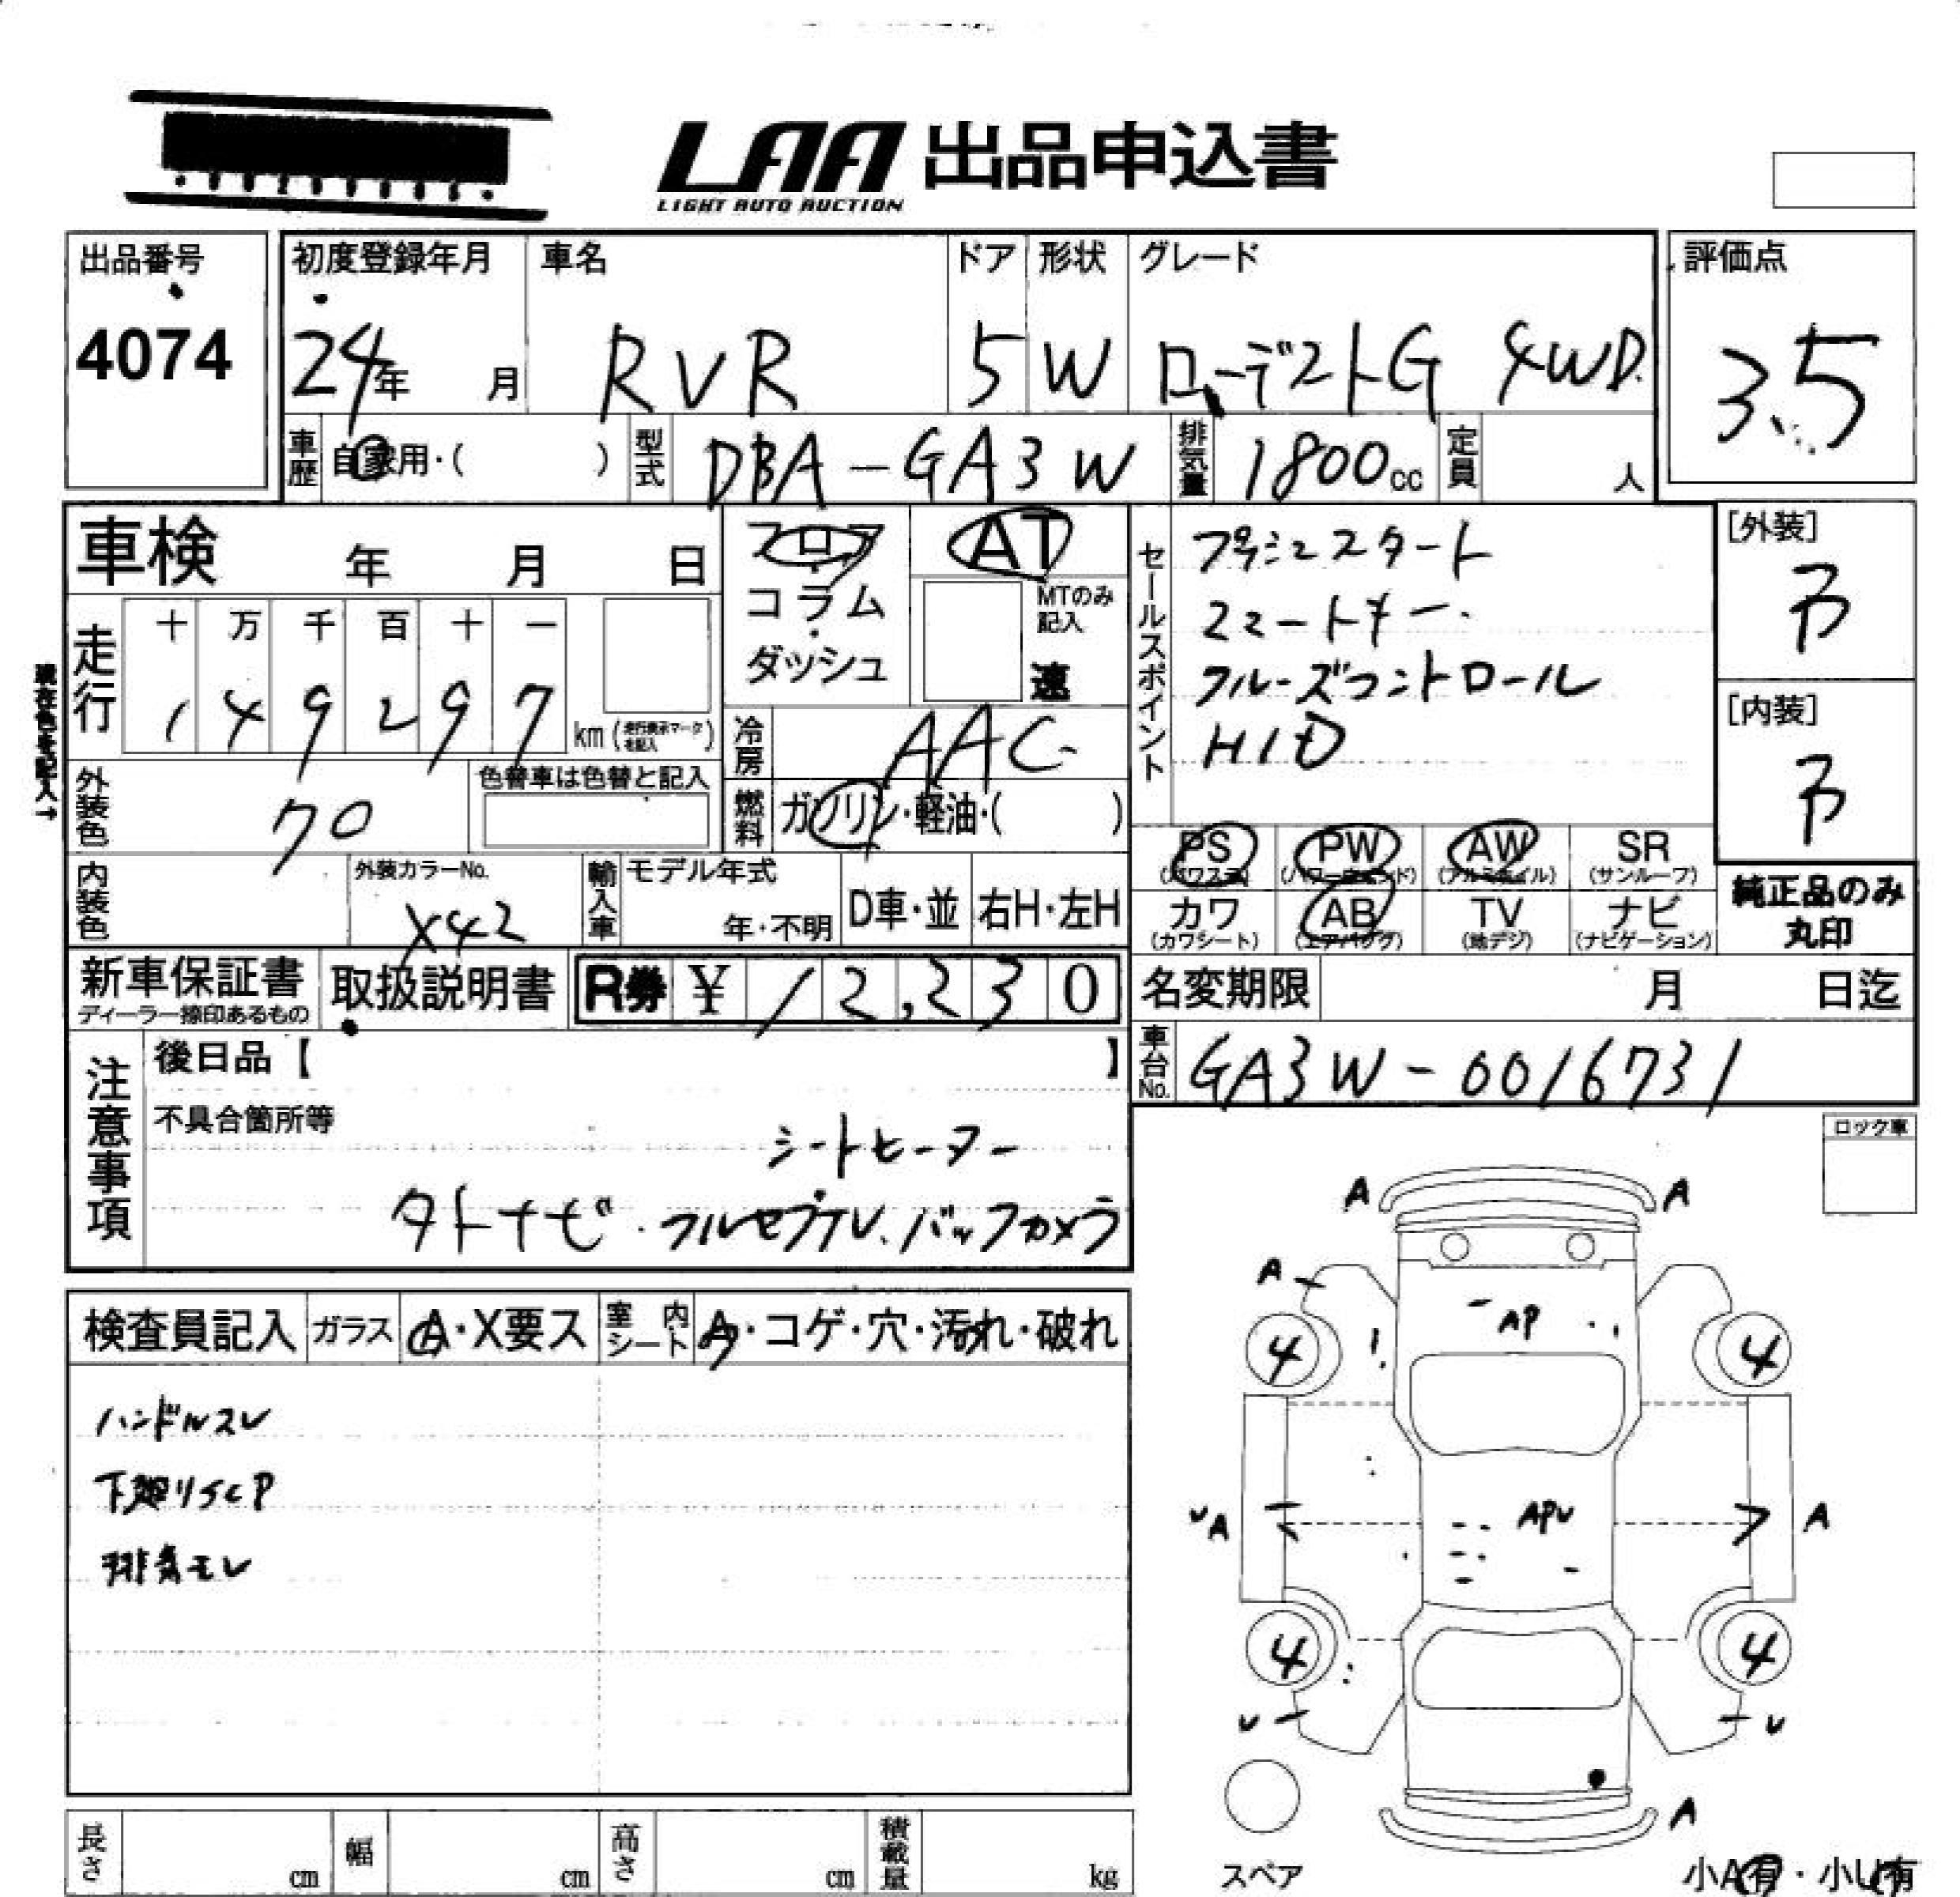 LAA 出品申込書
LIGHT AUTO AUCTION
出品番号
4074
初度登録年月 車名 ドア 形状 グレード 評価点
24年 月 RVR 5 W ローデストG 4WD 3.5
車歴 自家用・( ) 型式 DBA-GA3W 排気量 1800cc 定員 人
車検 年 月 日
フロア
コラム
ダッシュ
AT
MTのみ
記入
速
セールスポイント
プッシュスタート
スマートキー
クルーズコントロール
HID
[外装]
[内装]
現在色を記入→
走行 十 万 千 百 十 一
1 4 9 2 9 7 km (走行表示マークを記入)
冷房 AAC
外装色 色替車は色替と記入
燃料 ガソリン・軽油・( )
内装色 外装カラーNo. 輸入車 モデル年式
X42 年・不明 D車・並 右H・左H
PS PW AW SR
(パワステ) (パワーウィンド) (アルミホイル) (サンルーフ)
カワ AB TV ナビ
(カワシート) (エアバッグ) (地デジ) (ナビゲーション)
純正品のみ
丸印
新車保証書 取扱説明書 R券 ¥ 12,230
ディーラー捺印あるもの
名変期限 月 日迄
車台No. GA3W-0016731
注意事項
後日品【 】
不具合箇所等
シートヒーター
外ナビ・フルセグTV、バックカメラ
ロック車
検査員記入 ガラス A・X要ス 室内シート ・コゲ・穴・汚れ・破れ
ハンドルスレ
下廻りSCP
排気モレ
A A
A
AP
4 4
V A APV A
4 4
V V
A
スペア
小A有・小U有
長さ cm 幅 cm 高さ cm 積載量 kg